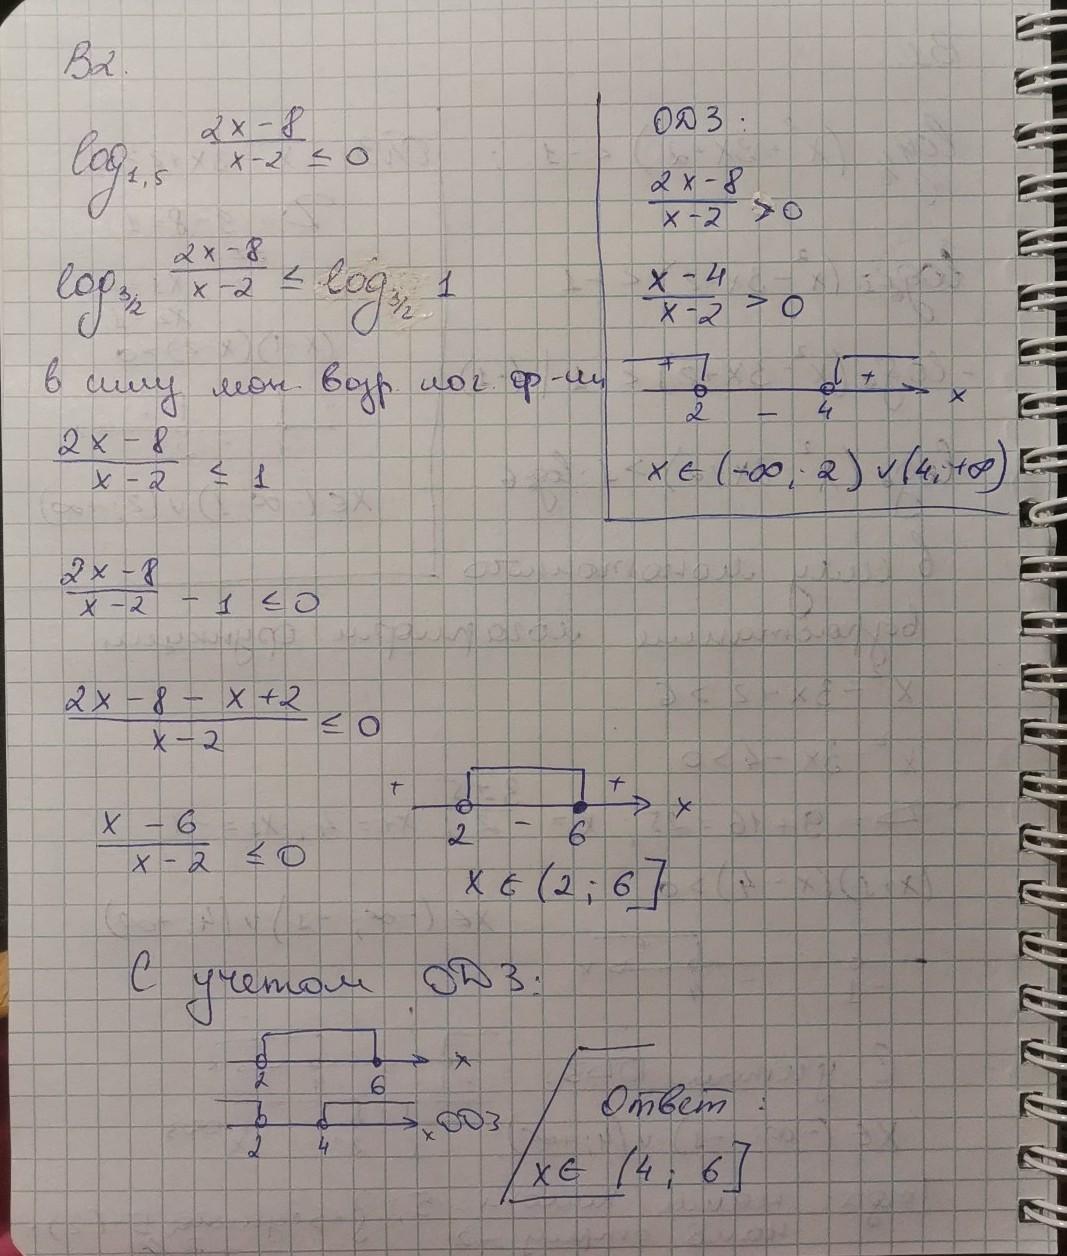 В2.
log_{1,5} (2x-8)/(x-2) ≤ 0
log_{3/2} (2x-8)/(x-2) ≤ log_{3/2} 1
в силу мон. возр. лог. ф-ии
(2x-8)/(x-2) ≤ 1
(2x-8)/(x-2) - 1 ≤ 0
(2x-8-x+2)/(x-2) ≤ 0
(x-6)/(x-2) ≤ 0
+ - + x
2 6
x ∈ (2; 6]
ОДЗ:
(2x-8)/(x-2) > 0
(x-4)/(x-2) > 0
+ - + x
2 4
x ∈ (-∞; 2) ∨ (4; +∞)
С учетом ОДЗ:
2 6 x
2 4 x ОДЗ
Ответ:
x ∈ (4; 6]